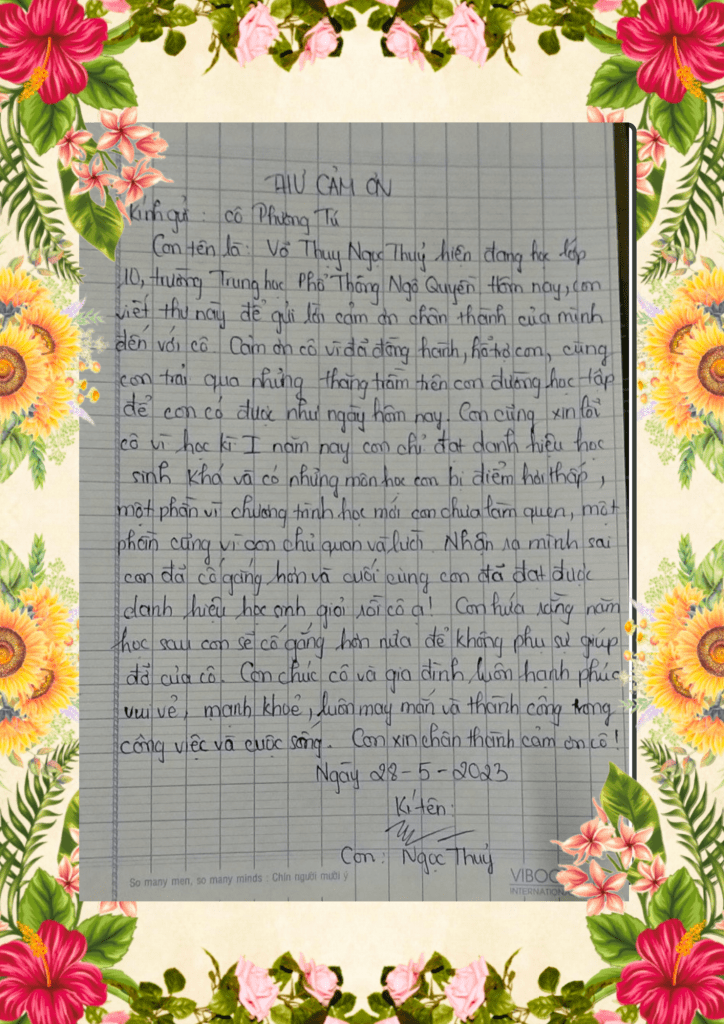 THƯ CẢM ƠN
Kính gửi : cô Phương Tú
Con tên là : Võ Thuỵ Ngọc Thuỷ hiện đang học lớp
10, trường Trung học Phổ Thông Ngô Quyền Hôm nay, con
viết thư này để gửi lời cảm ơn chân thành của mình
đến với cô. Cảm ơn cô vì đã đồng hành, hỗ trợ con, cùng
con trải qua những thăng trầm trên con đường học tập
để con có được như ngày hôm nay. Con cũng xin lỗi
cô vì học kì I năm nay con chỉ đạt danh hiệu học
sinh khá và có những môn học con bị điểm hơi thấp,
một phần vì chương trình học mới con chưa làm quen, một
phần cũng vì con chủ quan và lười. Nhận ra mình sai
con đã cố gắng hơn và cuối cùng con đã đạt được
danh hiệu học sinh giỏi rồi cô ạ! Con hứa rằng năm
học sau con sẽ cố gắng hơn nữa để không phụ sự giúp
đỡ của cô. Con chúc cô và gia đình luôn hạnh phúc
vui vẻ, mạnh khoẻ, luôn may mắn và thành công trong
công việc và cuộc sống. Con xin chân thành cảm ơn cô!
Ngày 28-5-2023
Kí tên:
Con: Ngọc Thuỷ
So many men, so many minds : Chín người mười ý
VIBOO
INTERNATION